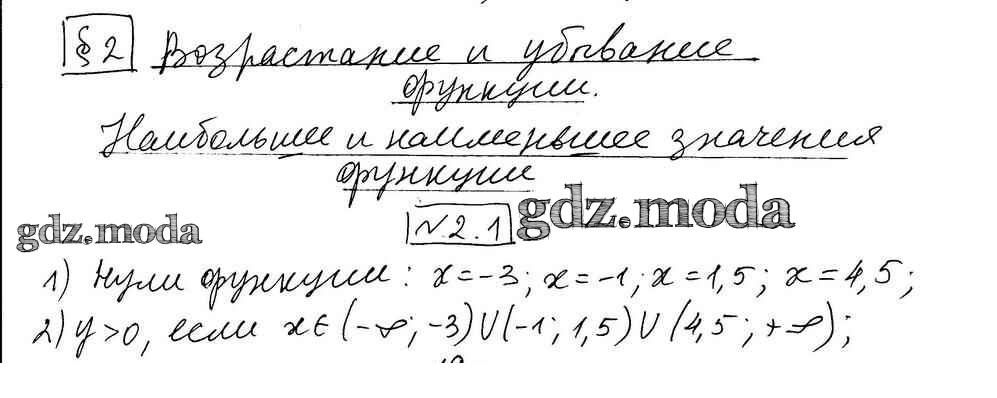 § 2 Возрастание и убывание
функции.
Наибольшее и наименьшее значения
функции
gdz.moda
№ 2.1
gdz.moda
1) Нули функции: x=-3; x=-1; x=1,5; x=4,5;
2) y>0, если x∈(-∞; -3)∪(-1; 1,5)∪(4,5; +∞);